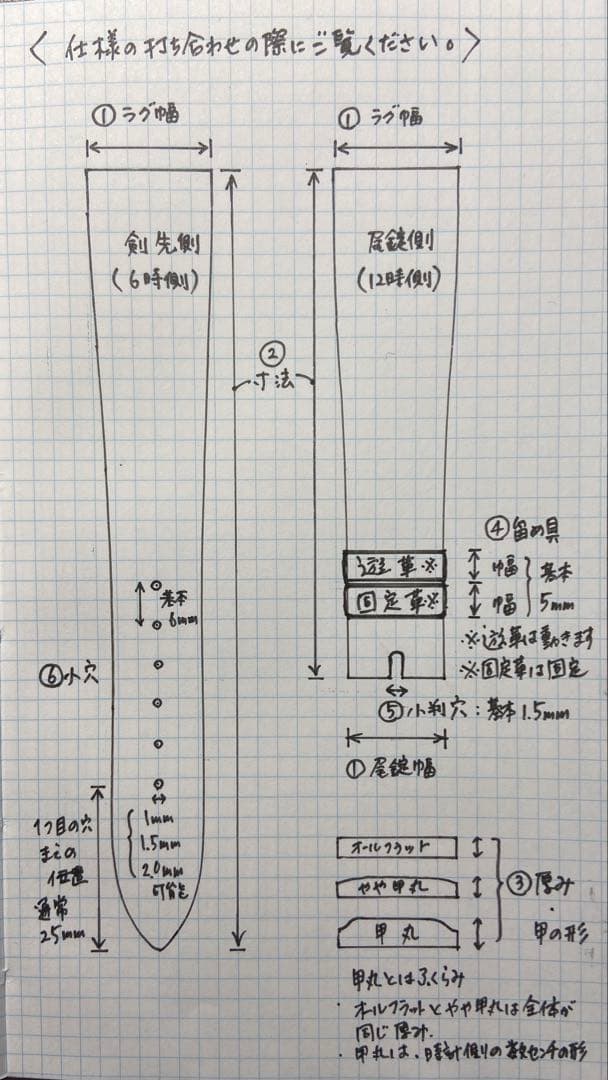 〈仕様の打ち合わせの際にご覧ください。〉
①ラグ幅
剣先側
(6時側)
①ラグ幅
尾錠側
(12時側)
②
寸法
基本
6mm
⑥小穴
1つ目の穴
までの
位置
通常
25mm
1mm
1.5mm
2.0mm
可能
④留め具
遊革※
幅
固定革※
幅
基本
5mm
※遊革は動きます
※固定革は固定
⑤小判穴:基本1.5mm
①尾錠幅
オールフラット
やや甲丸
甲丸
③厚み
・
甲の形
甲丸とはふくらみ
・オールフラットとやや甲丸は全体が
同じ厚み.
・甲丸は、時計側の数センチの形